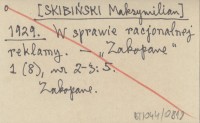 [SKIBIŃSKI Maksymilian]
1929. W sprawie racjonalnej
reklamy. – „Zakopane"
1 (8), nr 2-3: 5.
Zakopane.